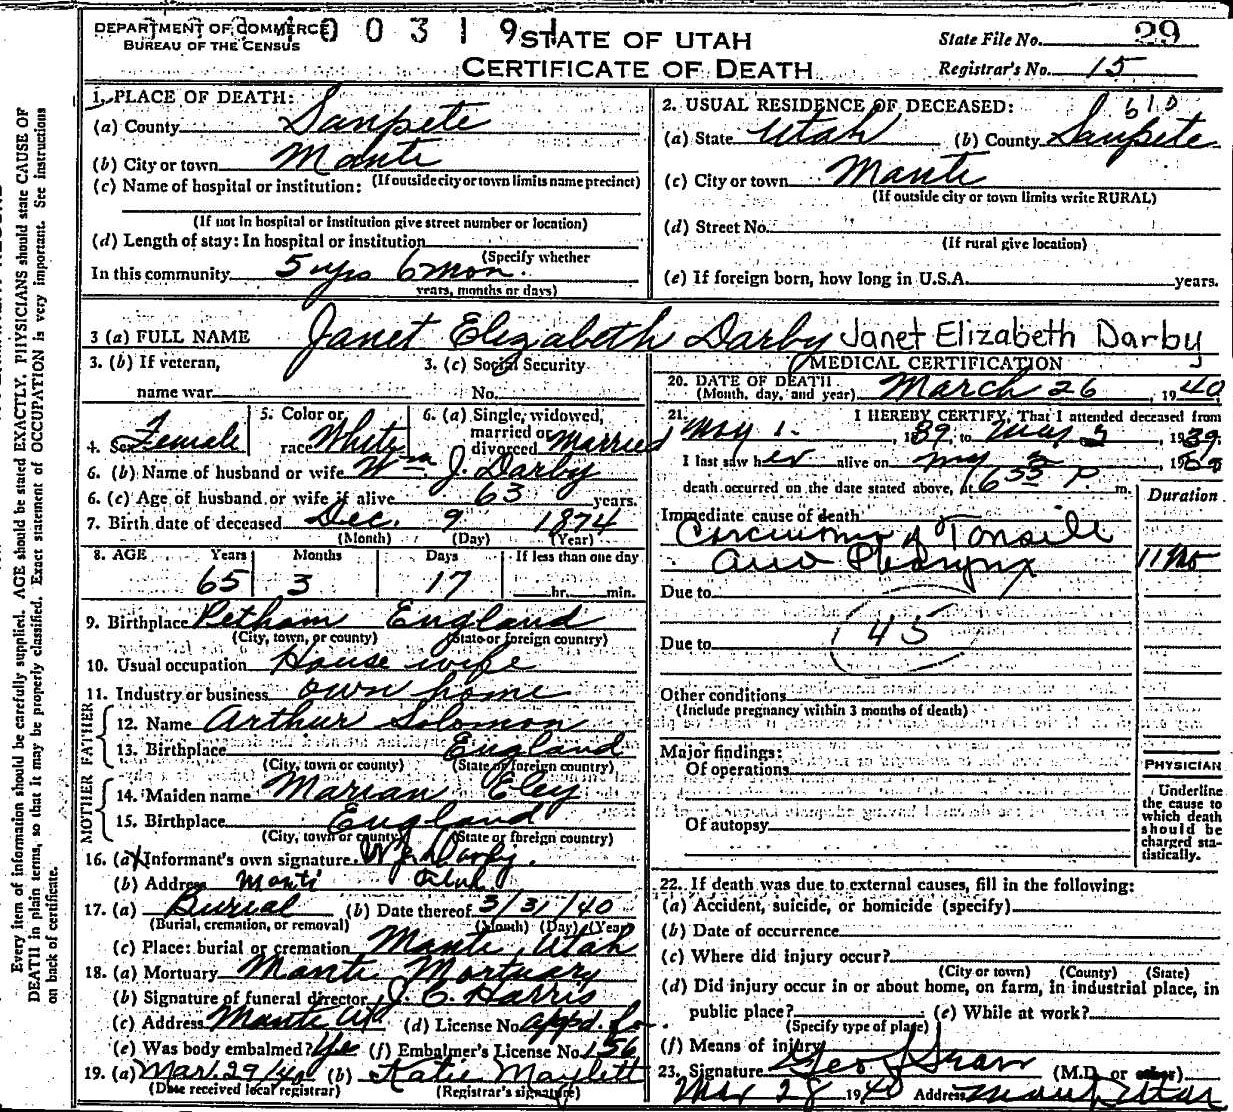 DEPARTMENT OF COMMERCE
BUREAU OF THE CENSUS
100319
STATE OF UTAH
CERTIFICATE OF DEATH
State File No. 29
Registrar's No. 15
1. PLACE OF DEATH:
(a) County Sanpete
(b) City or town Manti
(If outside city or town limits name precinct)
(c) Name of hospital or institution:
(If not in hospital or institution give street number or location)
(d) Length of stay: In hospital or institution
(Specify whether
In this community 5 yrs 6 mon.
years, months or days)
2. USUAL RESIDENCE OF DECEASED: 610
(a) State Utah (b) County Sanpete
(c) City or town Manti
(If outside city or town limits write RURAL)
(d) Street No.
(If rural give location)
(e) If foreign born, how long in U.S.A. years.
3 (a) FULL NAME Janet Elizabeth Darby Janet Elizabeth Darby
3. (b) If veteran,
name war
3. (c) Social Security
No.
4. Sex Female
5. Color or
race White
6. (a) Single, widowed,
married or
divorced Married
6. (b) Name of husband or wife Wm J. Darby
6. (c) Age of husband or wife if alive 63 years.
7. Birth date of deceased Dec. 9 1874
(Month) (Day) (Year)
8. AGE Years Months Days If less than one day
65 3 17 hr. min.
9. Birthplace Petham England
(City, town, or county) (State or foreign country)
10. Usual occupation House wife
11. Industry or business own home
FATHER
12. Name Arthur Solomon
13. Birthplace England
(City, town or county) (State or foreign country)
MOTHER
14. Maiden name Marian Eley
15. Birthplace England
(City, town or county) (State or foreign country)
16. (a) Informant's own signature W J. Darby.
(b) Address Manti Utah
17. (a) Burial (b) Date thereof 3/31/40
(Burial, cremation, or removal) (Month) (Day) (Year)
(c) Place: burial or cremation Manti, Utah
18. (a) Mortuary Manti Mortuary
(b) Signature of funeral director J. E. Harris
(c) Address Manti Ut (d) License No. appd. for.
(e) Was body embalmed? Yes (f) Embalmer's License No. 156
19. (a) Mar. 29/40 (b) Katie Maylett
(Date received local registrar) (Registrar's signature)
MEDICAL CERTIFICATION
20. DATE OF DEATH
(Month, day, and year) March 26, 1940
21. I HEREBY CERTIFY, That I attended deceased from
May 1., 1939 to , 1939.
I last saw her alive on , 19
death occurred on the date stated above, at 6 P. m.
Duration
Immediate cause of death
Carcinoma of Tonsill
and Pharynx 11 Mo
Due to
45
Due to
Other conditions
(Include pregnancy within 3 months of death)
Major findings:
Of operations
Of autopsy
PHYSICIAN
Underline
the cause to
which death
should be
charged sta-
tistically.
22. If death was due to external causes, fill in the following:
(a) Accident, suicide, or homicide (specify)
(b) Date of occurrence
(c) Where did injury occur?
(City or town) (County) (State)
(d) Did injury occur in or about home, on farm, in industrial place, in
public place? (e) While at work?
(Specify type of place)
(f) Means of injury
23. Signature Geo (M.D. or other)
Mar 28 1940 Address Manti Utah
Every item of information should be carefully supplied. AGE should be stated EXACTLY. PHYSICIANS should state CAUSE OF
DEATH in plain terms, so that it may be properly classified. Exact statement of OCCUPATION is very important. See instructions
on back of certificate.